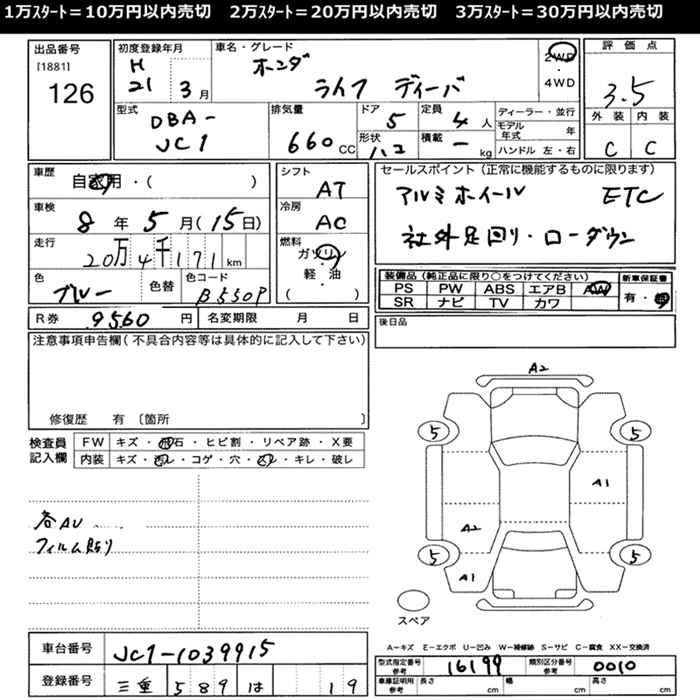 1万ｽﾀｰﾄ＝10万円以内売切 2万ｽﾀｰﾄ＝20万円以内売切 3万ｽﾀｰﾄ＝30万円以内売切
出品番号
[1881]
126
初度登録年月
H
21 3月
車名・グレード
ホンダ
ライフ ディーバ
2WD
・
4WD
評価点
3.5
外装 内装
C C
型式
DBA-
JC1
排気量
660 CC
ドア
5
定員
4人
形状
ハコ
積載
ー kg
ディーラー・並行
モデル年式 年
ハンドル 左・右
車歴
自家用・( )
車検
8年5月(15日)
走行
20万4千171 km
色
ブルー
色替
色コード
B550P
シフト
AT
冷房
AC
燃料
ガソリン
軽・油
( )
セールスポイント(正常に機能するものに限ります)
アルミホイール ETC
社外足回り・ローダウン
装備品(純正品に限り○をつけてください)
PS PW ABS エアB AW
SR ナビ TV カワ
新車保証書
有・無
R券 9560 円
名変期限 月 日
後日品
注意事項申告欄(不具合内容等は具体的に記入して下さい)
修復歴 有 〔箇所 〕
検査員
記入欄
FW キズ・飛石・ヒビ割・リペア跡・X要
内装 キズ・汚レ・コゲ・穴・スレ・キレ・破レ
各AU
フィルム貼り
A2
5 5
A1
A2
5 5
A1
スペア
A−キズ E−エクボ U−凹み W−補修跡 S−サビ C−腐食 XX−交換済
車台番号
JC1-1039915
登録番号
三重 589 は 19
型式指定番号
参考
16199
類別区分番号
参考
0010
車庫証明用
参考
長さ cm 幅 cm 高さ cm